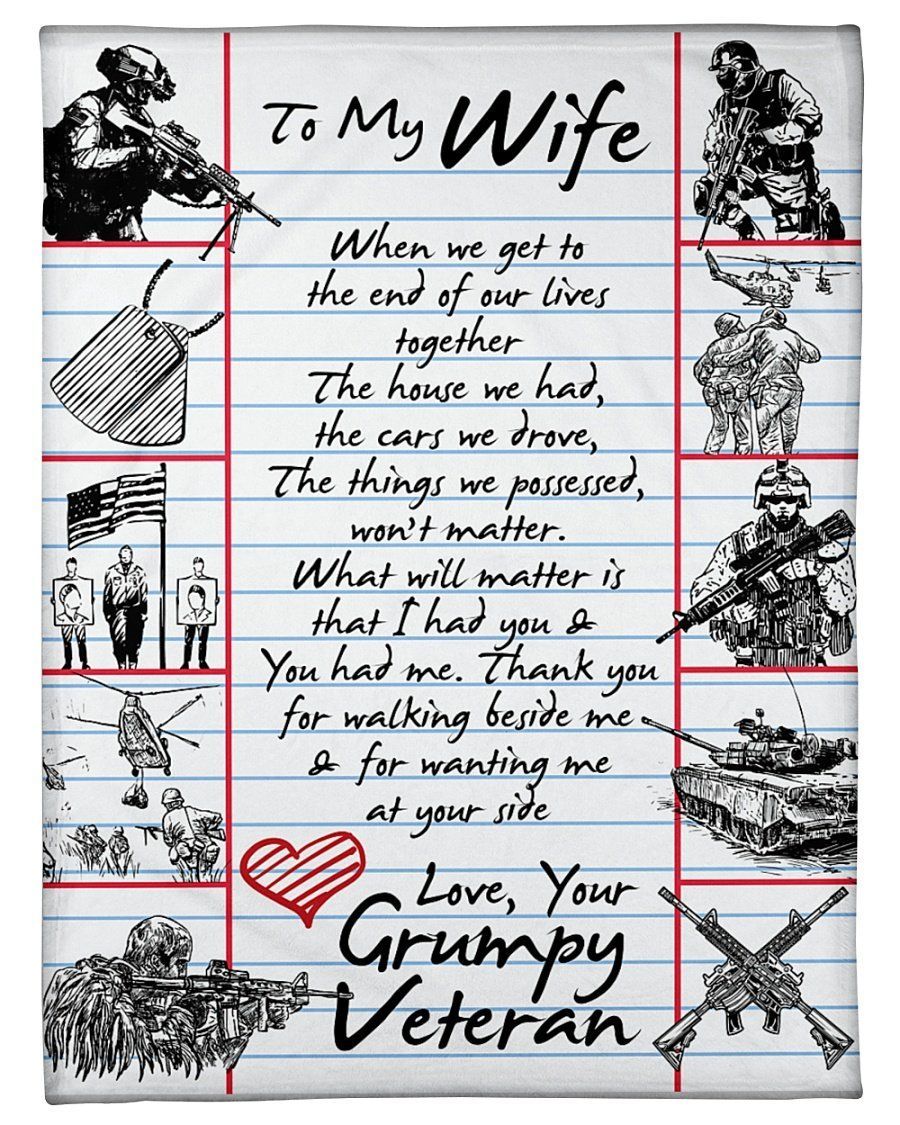 To My Wife
When we get to
the end of our lives
together
The house we had,
the cars we drove,
The things we possessed,
won't matter.
What will matter is
that I had you &
You had me. Thank you
for walking beside me
& for wanting me
at your side
Love, Your
Grumpy
Veteran